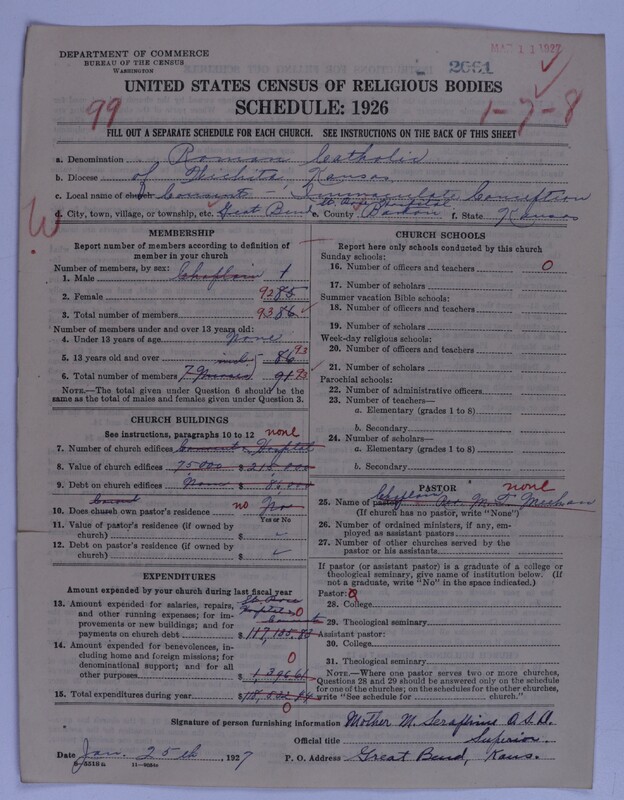 DEPARTMENT OF COMMERCE
BUREAU OF THE CENSUS
WASHINGTON
MAR 11 1927
2661
UNITED STATES CENSUS OF RELIGIOUS BODIES
SCHEDULE: 1926
99
1-7-8
FILL OUT A SEPARATE SCHEDULE FOR EACH CHURCH. SEE INSTRUCTIONS ON THE BACK OF THIS SHEET
a. Denomination Roman Catholic
b. Diocese of Wichita Kansas
c. Local name of church Convent - Immaculate Conception
St. Rose Hospital
d. City, town, village, or township, etc. Great Bend e. County Barton f. State Kansas
W
MEMBERSHIP
Report number of members according to definition of member in your church
Number of members, by sex:
1. Male Chaplain 1
2. Female 92 85
3. Total number of members 93 86
Number of members under and over 13 years old:
4. Under 13 years of age None
5. 13 years old and over incl. 86 93
6. Total number of members 7 Nurses 91 93
NOTE.—The total given under Question 6 should be the same as the total of males and females given under Question 3.
CHURCH BUILDINGS
See instructions, paragraphs 10 to 12 none
7. Number of church edifices Convent & Hospital
8. Value of church edifices 75000 $ 218,000
9. Debt on church edifices None $ 8,000
10. Does church own pastor's residence? no No
Yes or No
11. Value of pastor's residence (if owned by church) $
12. Debt on pastor's residence (if owned by church) $
EXPENDITURES
Amount expended by your church during last fiscal year
13. Amount expended for salaries, repairs, and other running expenses; for improvements or new buildings; and for payments on church debt St. Rose Hospital & Convent 0
14. Amount expended for benevolences, including home and foreign missions; for denominational support; and for all other purposes 0
$ 1,396.61
15. Total expenditures during year $
0
CHURCH SCHOOLS
Report here only schools conducted by this church
Sunday schools:
16. Number of officers and teachers 0
17. Number of scholars
Summer vacation Bible schools:
18. Number of officers and teachers
19. Number of scholars
Week-day religious schools:
20. Number of officers and teachers
21. Number of scholars
Parochial schools:
22. Number of administrative officers
23. Number of teachers—
a. Elementary (grades 1 to 8)
b. Secondary
24. Number of scholars—
a. Elementary (grades 1 to 8)
b. Secondary
PASTOR none
25. Name of pastor Chaplain Rev. M. T. Meehan
(If church has no pastor, write "None")
26. Number of ordained ministers, if any, employed as assistant pastors
27. Number of other churches served by the pastor or his assistants
If pastor (or assistant pastor) is a graduate of a college or theological seminary, give name of institution below. (If not a graduate, write "No" in the space indicated.)
Pastor: 0
28. College
29. Theological seminary
Assistant pastor:
30. College
31. Theological seminary
NOTE.—Where one pastor serves two or more churches, Questions 28 and 29 should be answered only on the schedule for one of the churches; on the schedules for the other churches, write "See schedule for church."
Signature of person furnishing information Mother M. Seraphine O.S.D.
Official title Superior
Date Jan. 25th, 1927 P. O. Address Great Bend, Kans.
8-3319a 11-9054a